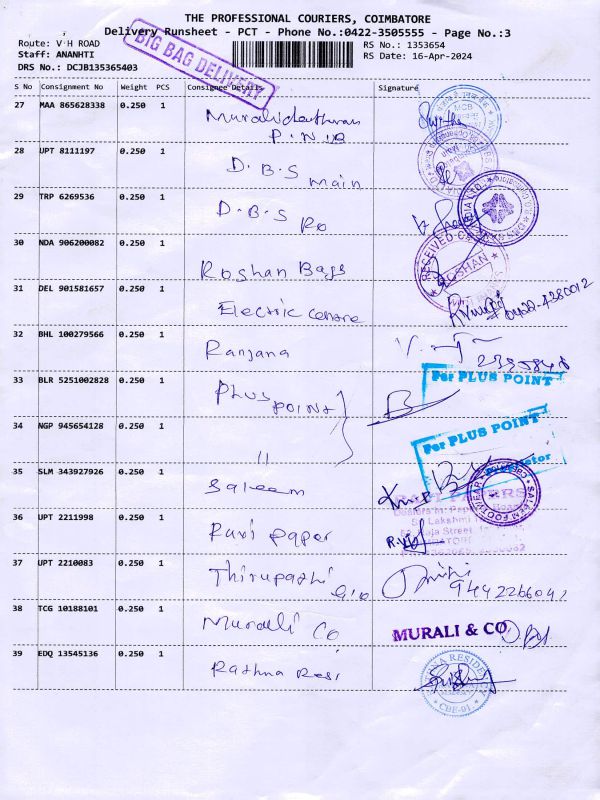 THE PROFESSIONAL COURIERS, COIMBATORE
Delivery Runsheet - PCT - Phone No.:0422-3505555 - Page No.:3
Route: V H ROAD
RS No.: 1353654
Staff: ANANHTI
RS Date: 16-Apr-2024
DRS No.: DCJB135365403
BIG BAG DELIVERY
S No Consignment No Weight PCS Consignee Details Signature
27 MAA 865628338 0.250 1
P.N.
28 UPT 8111197 0.250 1 D.B.S main
29 TRP 6269536 0.250 1 D.B.S Ro
30 NDA 906200082 0.250 1 Roshan Bags
RECEIVED
ROSHAN
31 DEL 901581657 0.250 1 Electric centre
0422-4380012
32 BHL 100279566 0.250 1 Ranjana
33 BLR 5251002828 0.250 1 PLUS POINT
For PLUS POINT
34 NGP 945654128 0.250 1 11
For PLUS POINT
Proprietor
35 SLM 343927926 0.250 1 Saleem
SALEEM FOOTWEAR
36 UPT 2211998 0.250 1 Ravi paper
37 UPT 2210083 0.250 1 Thirupathi
9442266041
38 TCG 10188101 0.250 1 Murali Co
MURALI & CO
39 EDQ 13545136 0.250 1 Rathna Resi
RESIDENCY
CBE-01.